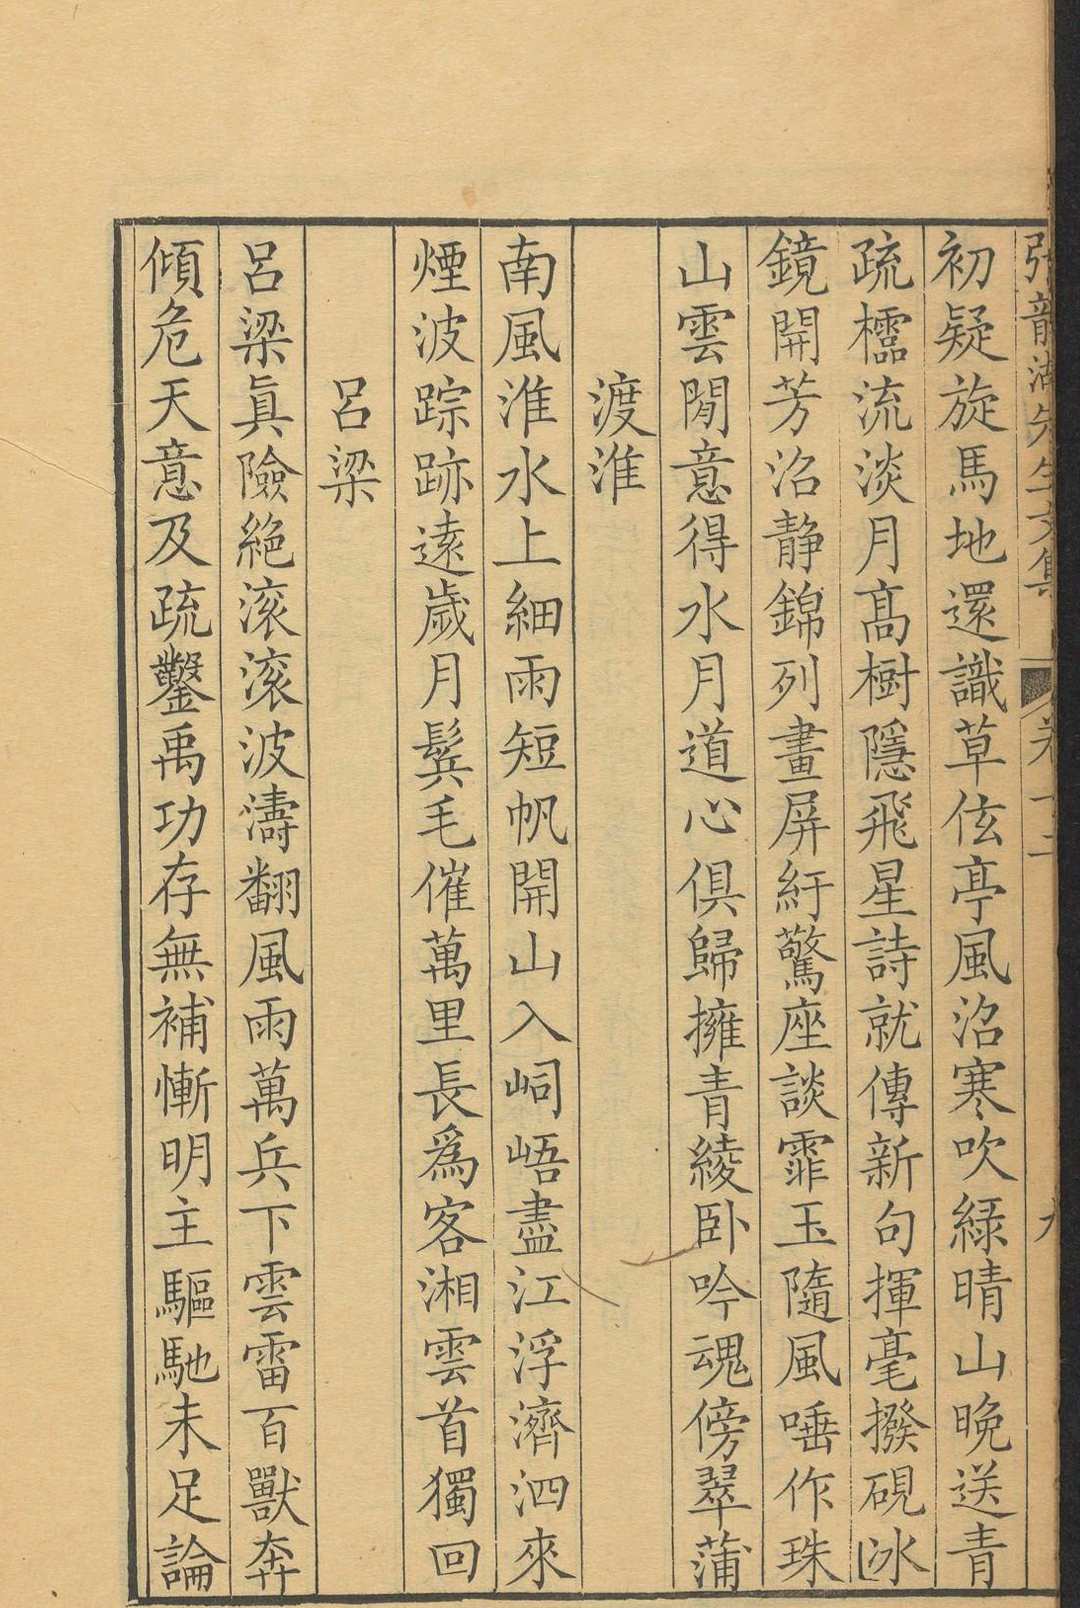 張龍湖先生文集 卷十二 九
初疑旋馬地還識草伭亭風沼寒吹緑晴山晩送青
疏櫺流淡月髙樹隱飛星詩就傳新句揮毫撥硯冰
鏡開芳沼静錦列畫屏紆驚座談霏玉隨風唾作珠
山雲閒意得水月道心俱歸擁青綾卧吟魂傍翠蒲
渡淮
南風淮水上細雨短帆開山入峒峿盡江浮濟泗來
煙波踪跡逺歲月鬂毛催萬里長爲客湘雲首獨回
呂梁
呂梁眞險絶滚滚波濤翻風雨萬兵下雲雷百獸奔
傾危天意及疏鑿禹功存無補慚明主驅馳未足論